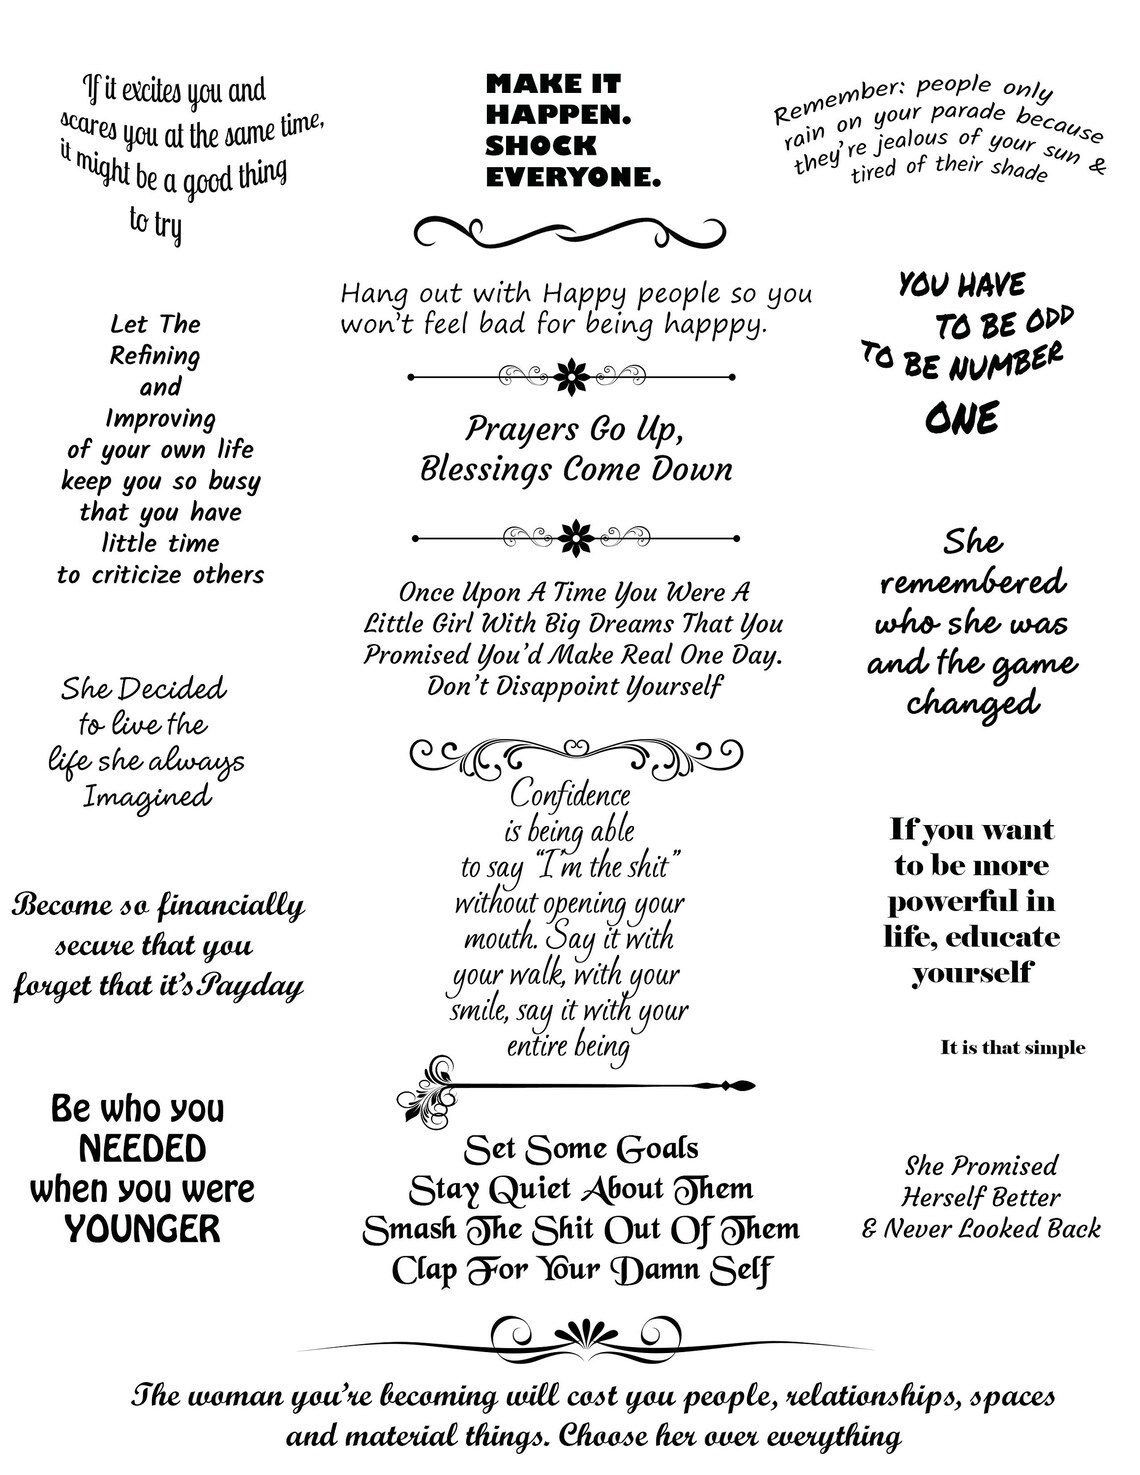 If it excites you and
scares you at the same time,
it might be a good thing
to try
MAKE IT
HAPPEN.
SHOCK
EVERYONE.
Remember: people only
rain on your parade because
they're jealous of your sun &
tired of their shade
Hang out with Happy people so you
won't feel bad for being happpy.
YOU HAVE
TO BE ODD
TO BE NUMBER
ONE
Let The
Refining
and
Improving
of your own life
keep you so busy
that you have
little time
to criticize others
Prayers Go Up,
Blessings Come Down
Once Upon A Time You Were A
Little Girl With Big Dreams That You
Promised You'd Make Real One Day.
Don't Disappoint Yourself
She
remembered
who she was
and the game
changed
She Decided
to live the
life she always
Imagined
Confidence
is being able
to say “I'm the shit”
without opening your
mouth. Say it with
your walk, with your
smile, say it with your
entire being
If you want
to be more
powerful in
life, educate
yourself
It is that simple
Become so financially
secure that you
forget that it's Payday
Be who you
NEEDED
when you were
YOUNGER
Set Some Goals
Stay Quiet About Them
Smash The Shit Out Of Them
Clap For Your Damn Self
She Promised
Herself Better
& Never Looked Back
The woman you're becoming will cost you people, relationships, spaces
and material things. Choose her over everything